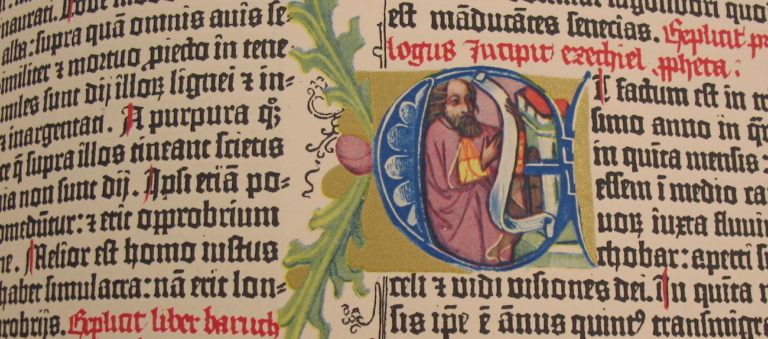 inaurati.
alba: supra quā omnis auis se⸗
imiliter ⁊ mortuo ꝓiecto in tene
imiles sunt dij illoꝝ lignei ⁊ in⸗
inargentati. A purpura qꝫ
ꝙ̄ supra illos tineant scietis
ia non sunt dij. Ipsi etiā po⸗
omedūtur: ⁊ erit opprobrium
ne. Melior est homo iustus
habet simulacra: nā erit lon⸗
probrijs. Explicit liber baruch
est māducātes senecias. Explicit pr
logus Incipit ezechiel ꝓpheta.
Et factum est in tr
simo anno in q̄
in quīta mensis:
essem ī medio ca
uoꝝ iuxta fluui
chobar: aperti s
celi ⁊ vidi visiones dei. In quīta
sis ip̄e ē ānus quintꝰ transmigra